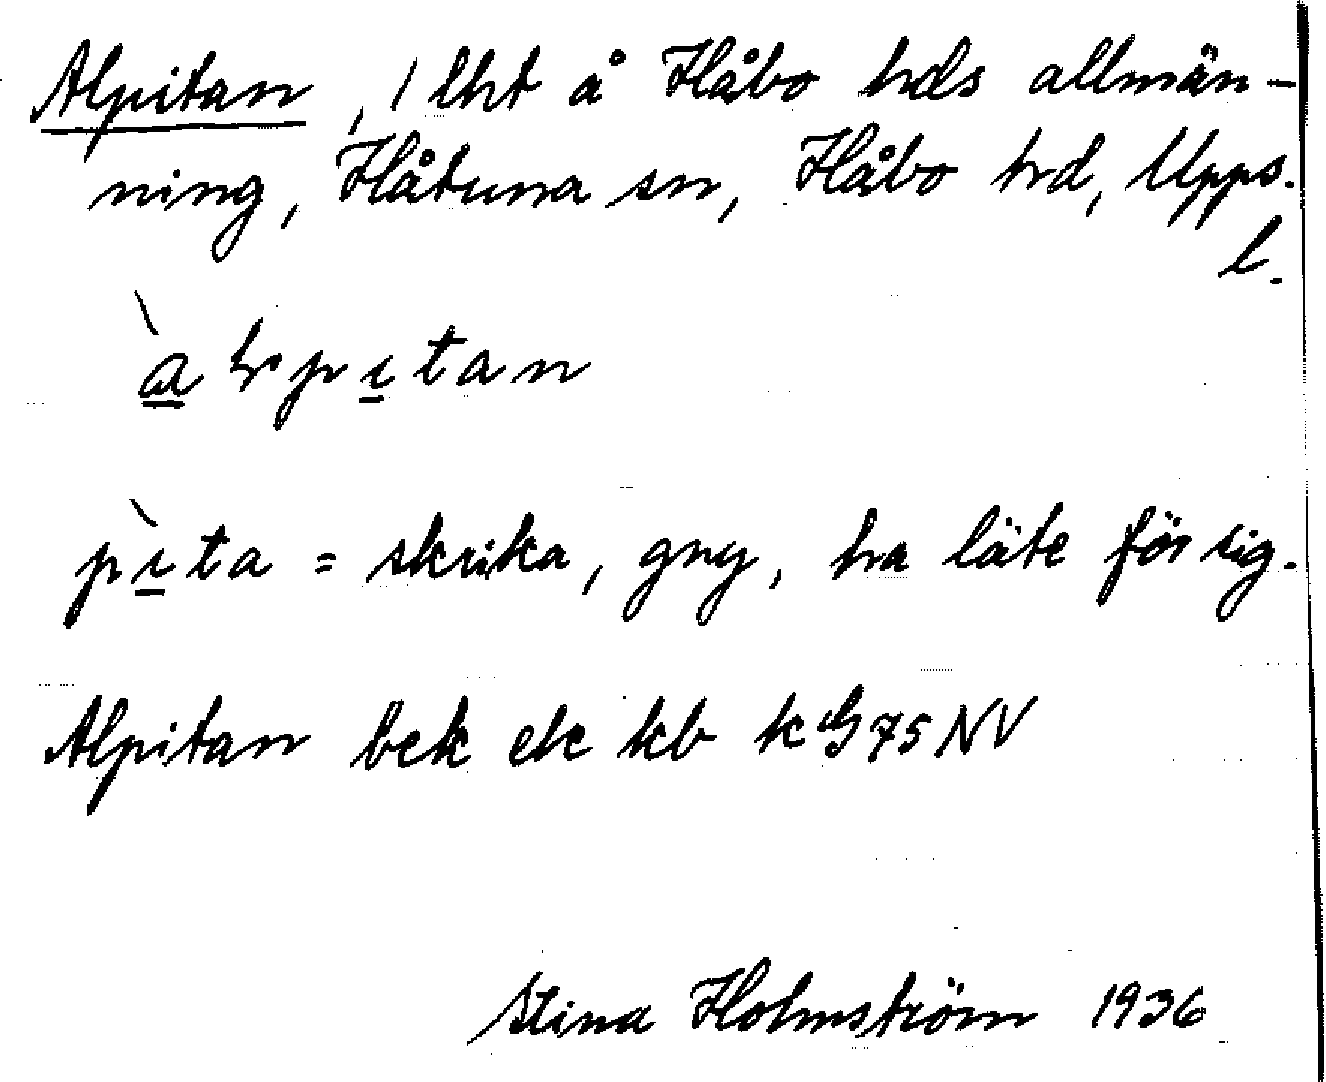 Alpitan, 1 lht å Håbo hds allmän-
ning, Håtuna sn, Håbo hrd, Upps.
l.
pìta = skrika, gny, ha läte för sig.
Alpitan bek ek kb kG75NV
Stina Holmström 1936